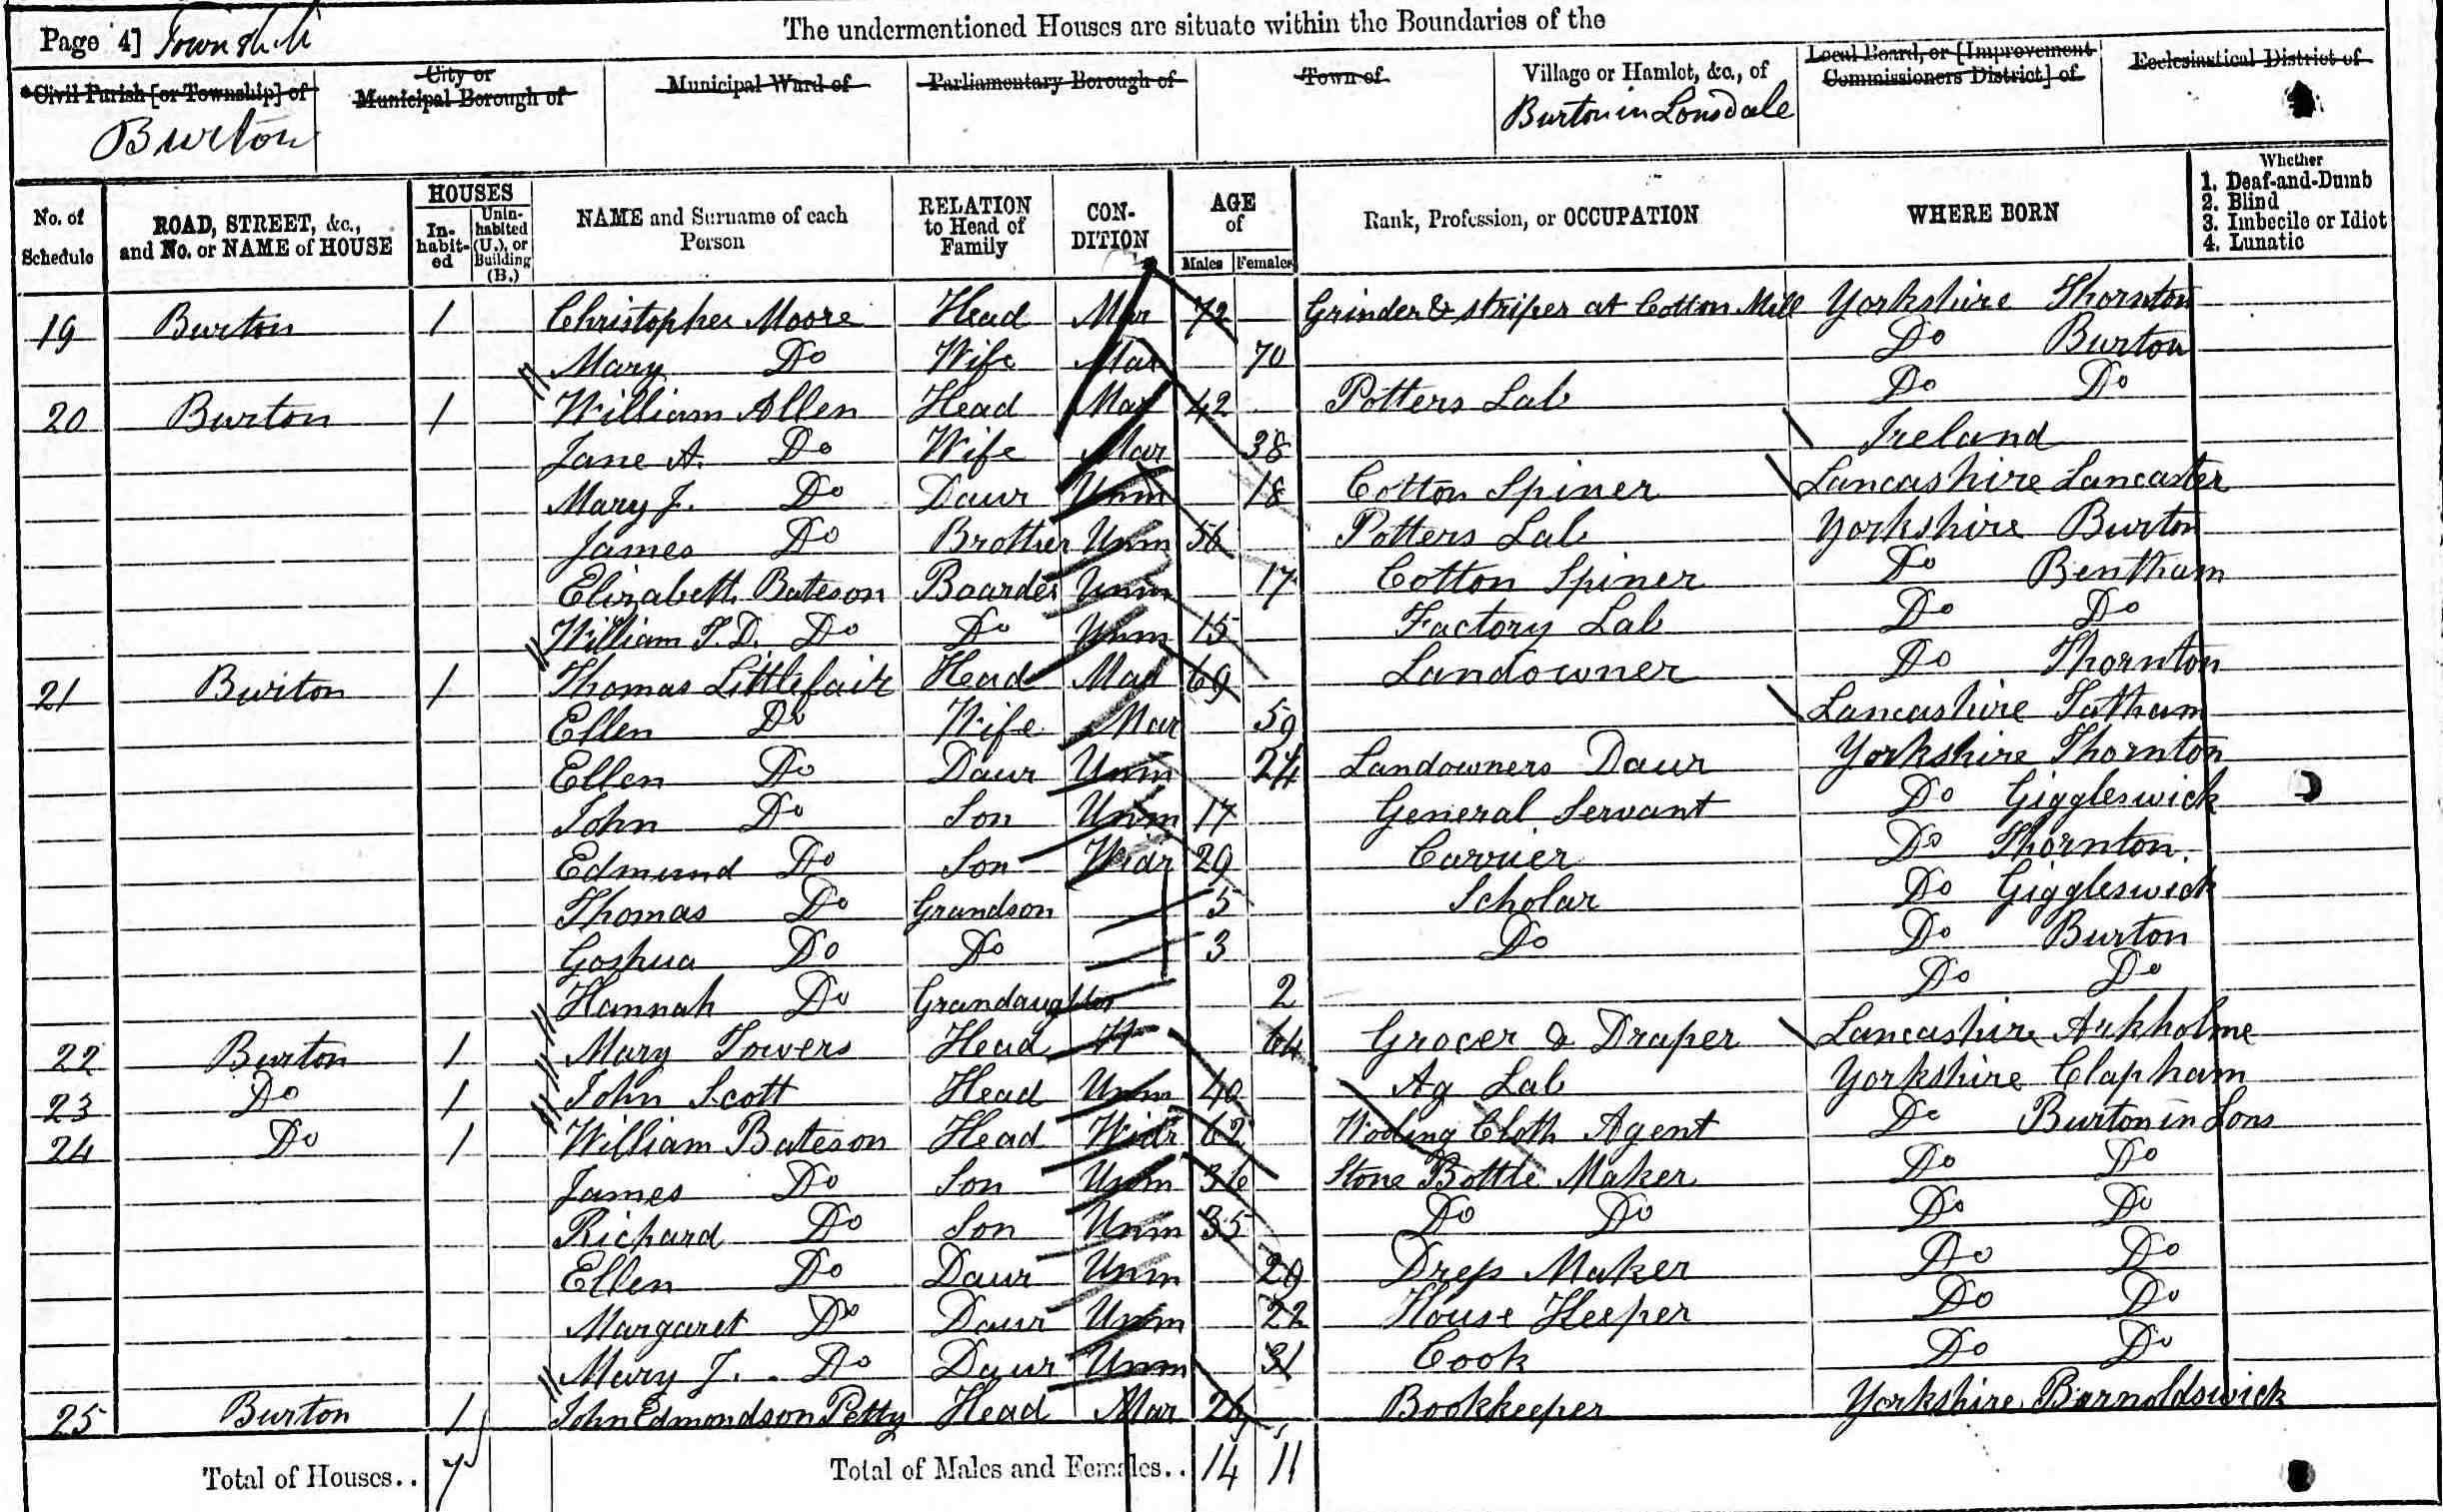 The undermentioned Houses are situate within the Boundaries of the
Page 4] Township
Civil Parish [or Township] of
City or Municipal Borough of
Municipal Ward of
Parliamentary Borough of
Town of
Village or Hamlet, &c., of
Local Board, or [Improvement Commissioners District] of
Ecclesiastical District of
Burton
Burton in Lonsdale
No. of Schedule
ROAD, STREET, &c., and No. or NAME of HOUSE
HOUSES
In-habit-ed
Unin-habited (U.), or Building (B.)
NAME and Surname of each Person
RELATION to Head of Family
CON-DITION
AGE of
Males
Females
Rank, Profession, or OCCUPATION
WHERE BORN
Whether
1. Deaf-and-Dumb
2. Blind
3. Imbecile or Idiot
4. Lunatic
19 Burton 1 Christopher Moore Head Mar 72 Grinder & striper at Cotton Mill Yorkshire Thornton
Mary Do Wife Mar 70 Do Burton
20 Burton 1 William Allen Head Mar 42 Potters Lab Do Do
Jane A. Do Wife Mar 38 Ireland
Mary J. Do Daur Unm 18 Cotton Spiner Lancashire Lancaster
James Do Brother Unm 56 Potters Lab Yorkshire Burton
Elizabeth Bateson Boarder Unm 17 Cotton Spiner Do Bentham
William T.D. Do Do Unm 15 Factory Lab Do Do
21 Burton 1 Thomas Littlefair Head Mar 69 Landowner Do Thornton
Ellen Do Wife Mar 59 Lancashire Tatham
Ellen Do Daur Unm 24 Landowners Daur Yorkshire Thornton
John Do Son Unm 17 General Servant Do Giggleswick
Edmund Do Son Widr 29 Carrier Do Thornton.
Thomas Do Grandson 5 Scholar Do Giggleswick
Goshua Do Do 3 Do Do Burton
Hannah Do Grandaughter 2 Do Do
22 Burton 1 Mary Towers Head W 64 Grocer & Draper Lancashire Arkholme
23 Do 1 John Scott Head Unm 40 Ag Lab Yorkshire Clapham
24 Do 1 William Bateson Head Widr 62 Cloth Agent Do Burton in Lons
James Do Son Unm 36 Stone Bottle Maker Do Do
Richard Do Son Unm 35 Do Do Do Do
Ellen Do Daur Unm 29 Dress Maker Do Do
Margaret Do Daur Unm 22 House Keeper Do Do
Mary J. Do Daur Unm 31 Cook Do Do
25 Burton 1 John Edmondson Petty Head Mar 26 Bookkeeper Yorkshire Barnoldswick
Total of Houses.. 7 Total of Males and Females.. 14 11